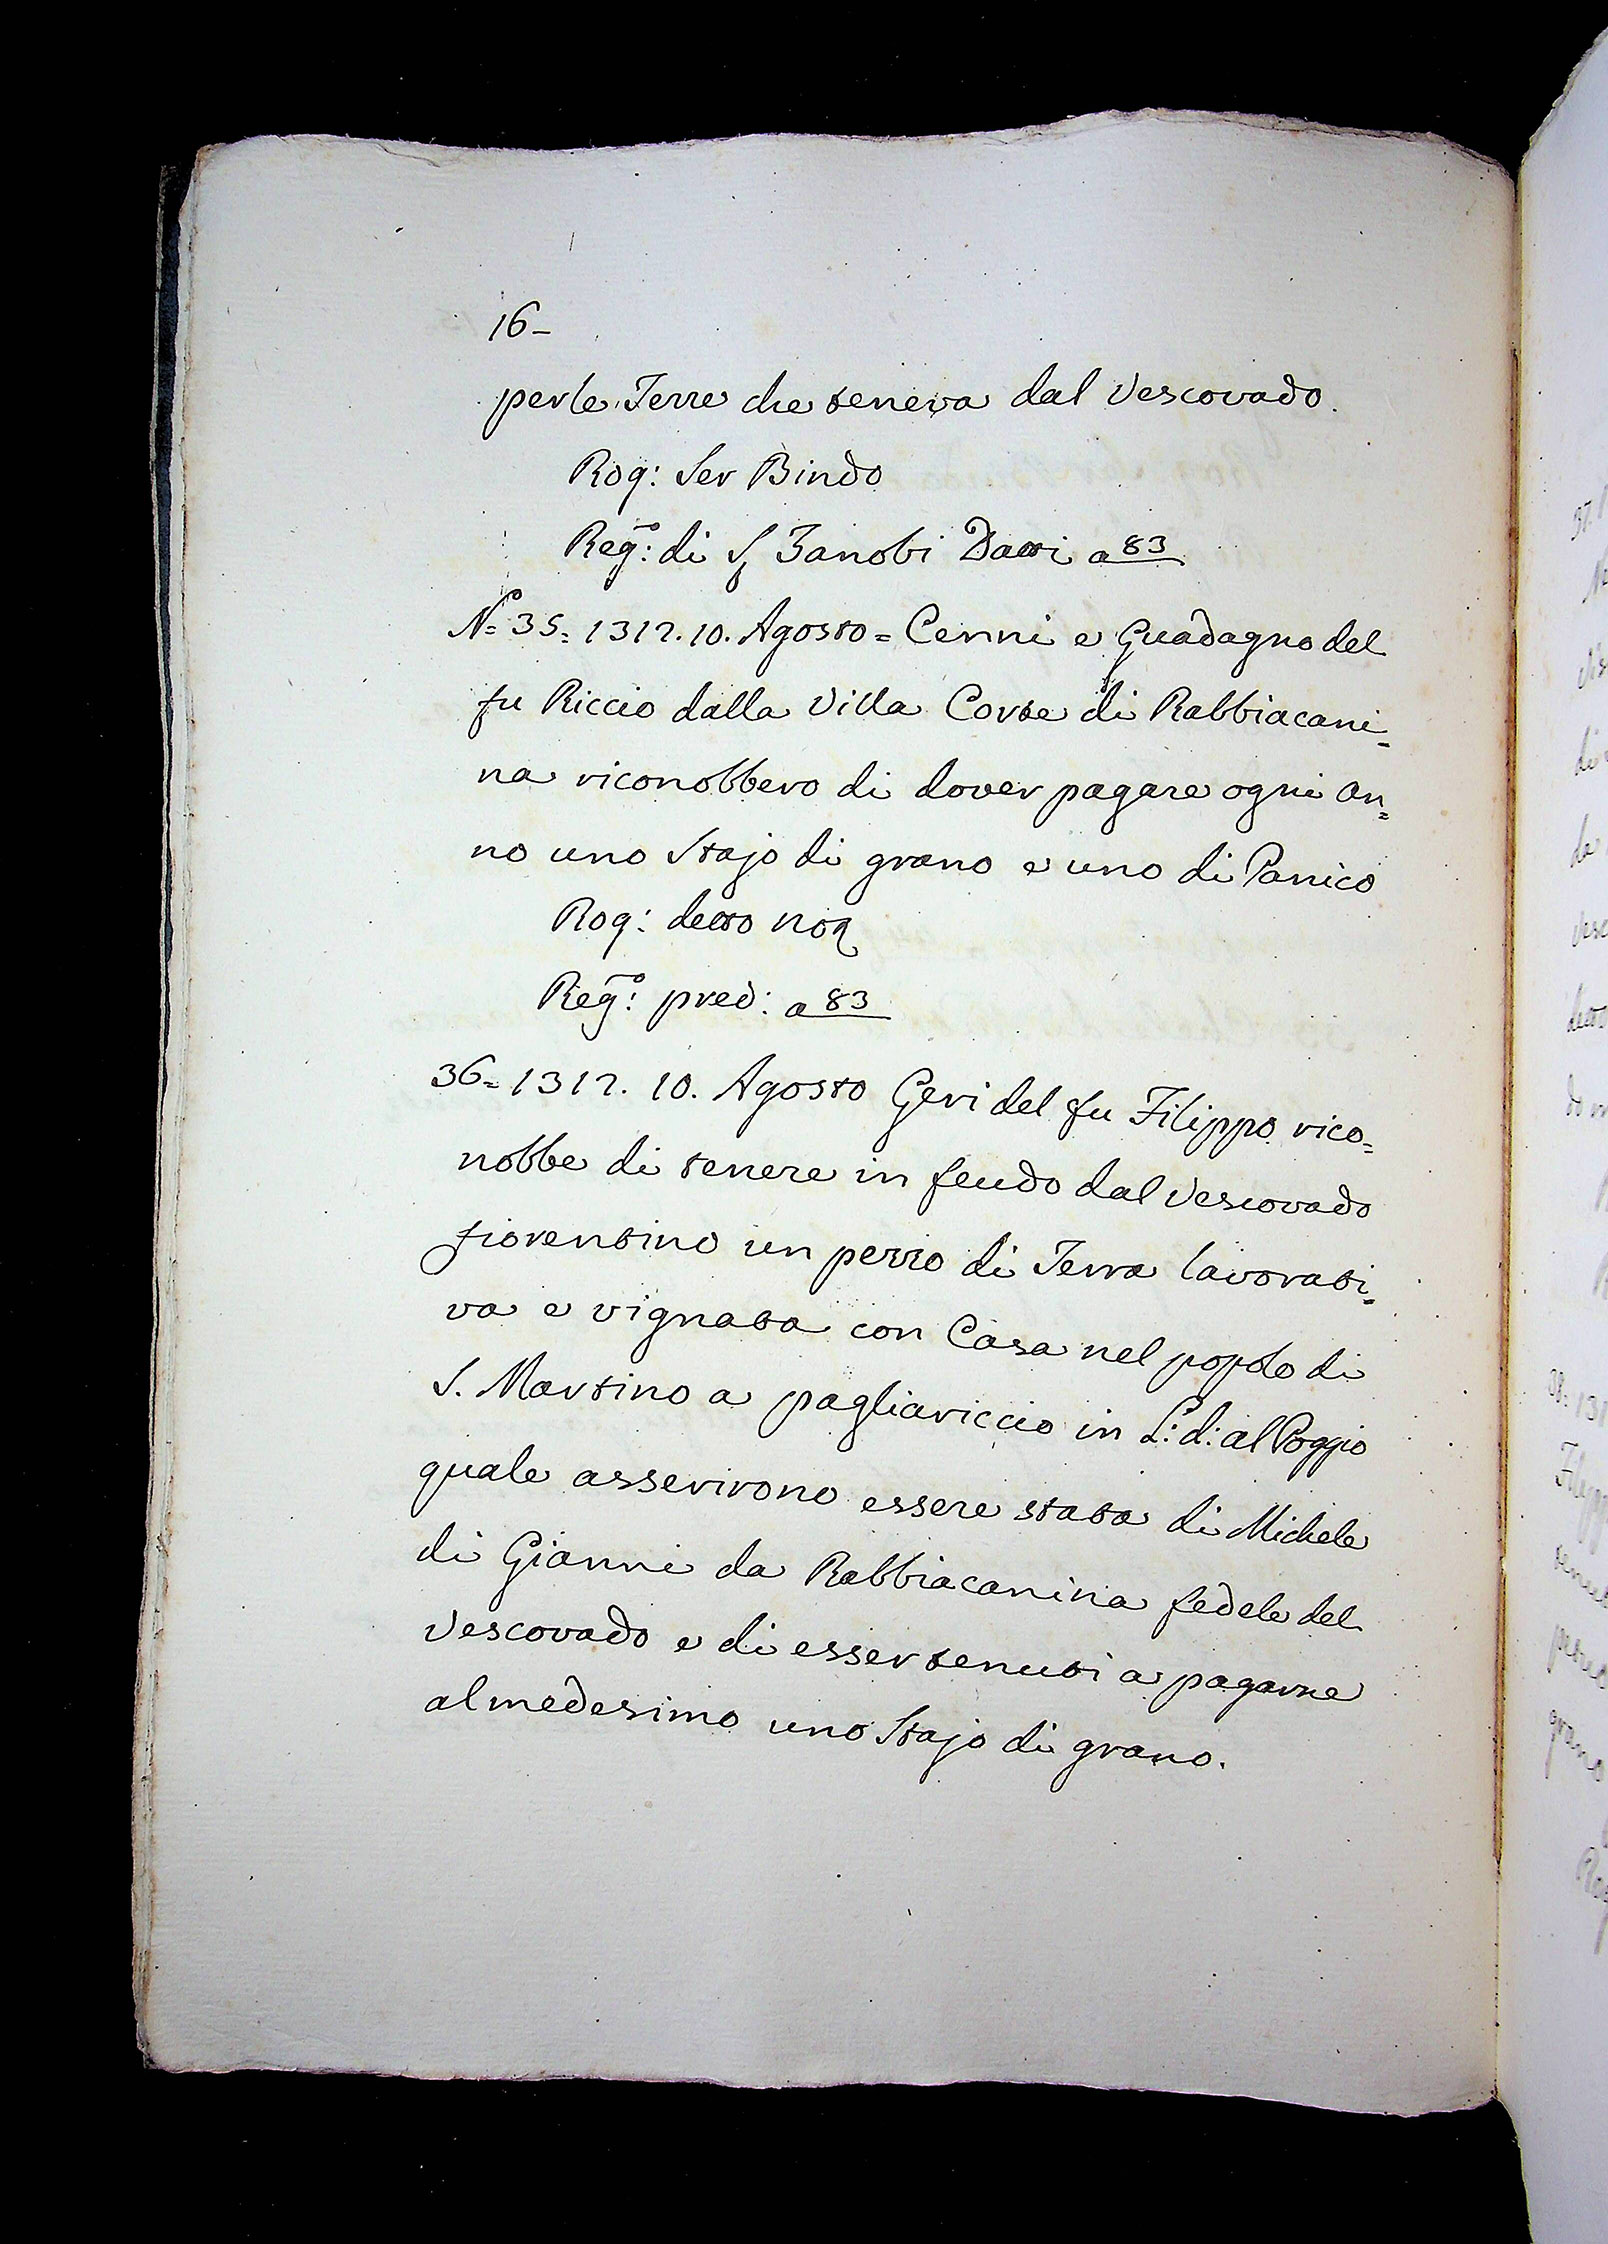 16-
per le Terre che teneva dal Vescovado.
Rog: Ser Bindo
Reg.o: di S Zanobi Datti a 83
N.o 35 = 1312. 10. Agosto = Cenni e Guadagno del
fu Riccio dalla Villa Corte di Rabbiacani=
na riconobbero di dover pagare ogni an=
no uno Stajo di grano e uno di Panico
Rog: detto Not
Reg.o: pred: a 83
36 = 1312. 10. Agosto Geri del fu Filippo rico=
nobbe di tenere in feudo dal Vescovado
fiorentino un pezzo di Terra lavorati=
va e vignata con Casa nel popolo di
S. Martino a pagliariccio in L: d: al Poggio
quale asserirono essere stata di Michele
di Gianni da Rabbiacanina fedele del
Vescovado e di esser tenuti a pagarne
al medesimo uno Stajo di grano.